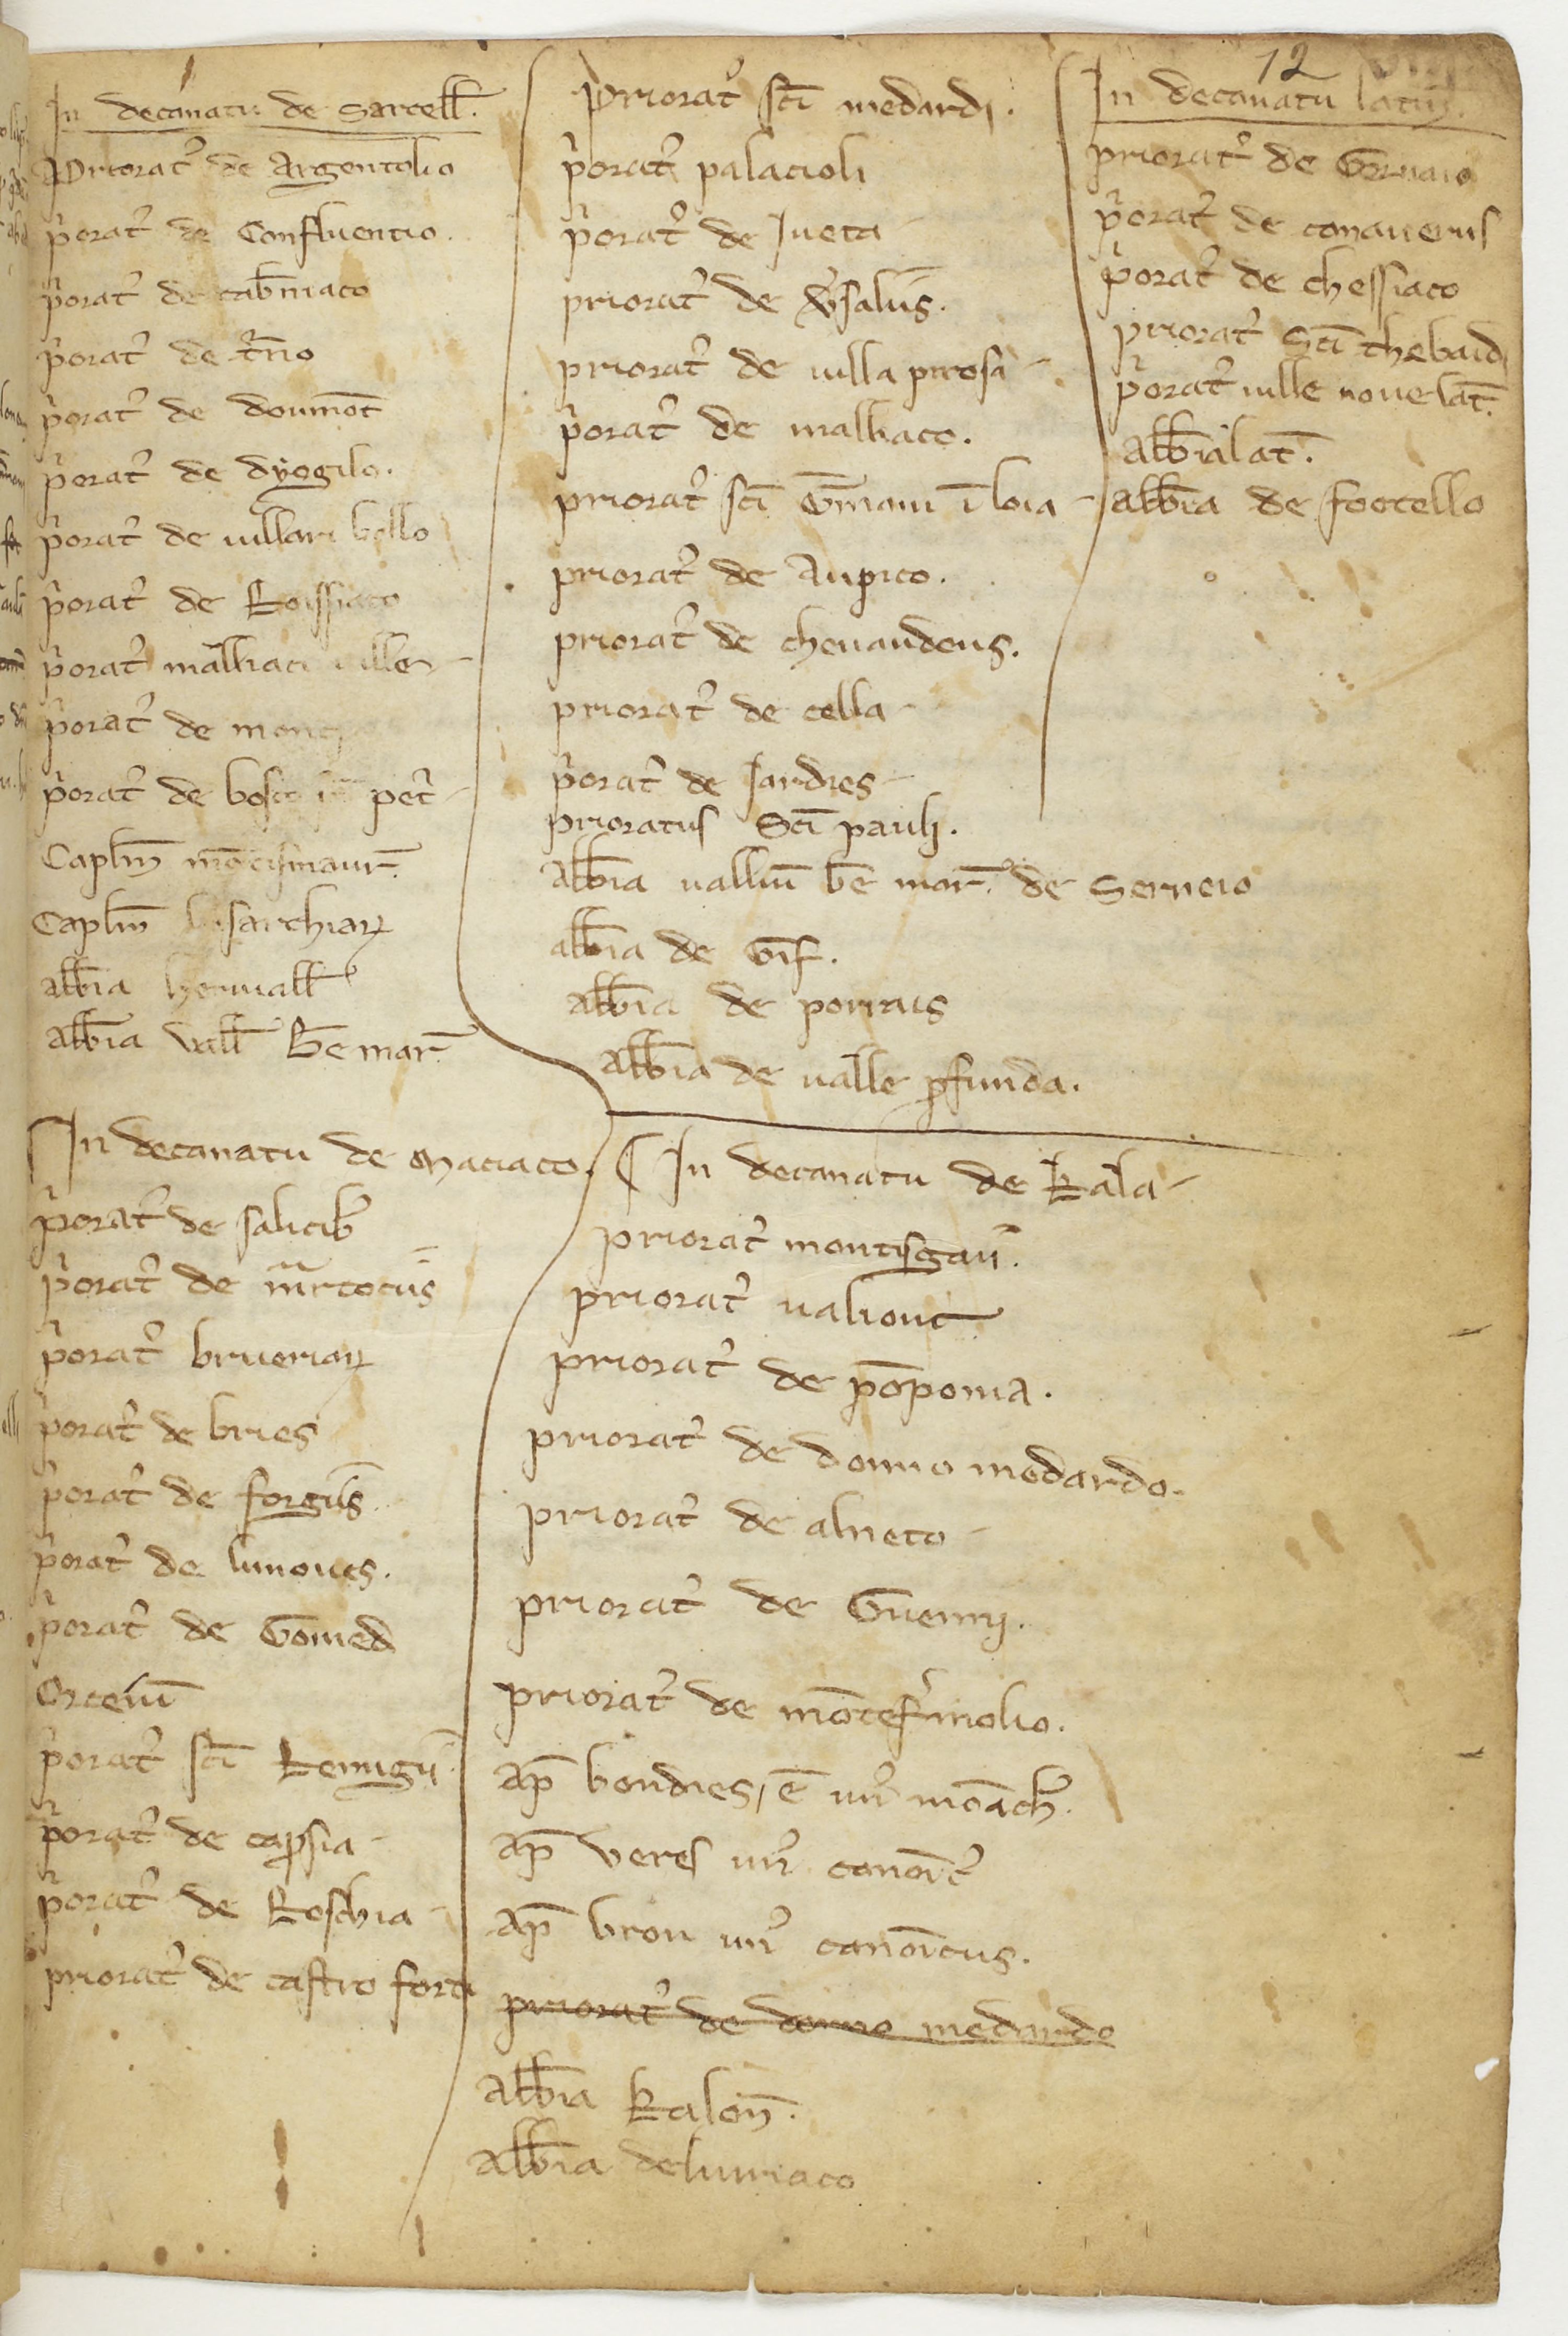 12
In decanatu de Sarcell.
Priorat' de Argentolio
p'orat' de Confluentio.
p'orat' de tab'niaco
p'orat' de t'no
p'orat' de doumōt
p'orat' de dyogilo.
p'orat' de uillari bello
p'orat' de Roissiaco
p'orat' malliaci uille
p'orat' de
p'orat' de bosco pet'
Caplm̄ mōtismaur.
Caplm̄
abb̄ia heruuall
abb̄ia vall' b̄e mar.
Priorat' sc̄i medardi.
p'orat' palacioli
p'orat' de Iueta
priorat' de v'saliis.
priorat' de uilla petrosa
p'orat' de malliaco.
priorat' sc̄i G'mani ī loia
priorat' de Aupico.
priorat' de cheuaudeus.
priorat' de cella
p'orat' de Iardies
prioratus Sc̄i pauli.
abb̄ia uallium b̄e mar. de Serneio
abb̄ia de Gif.
abb̄ia de porrais
abb̄ia de ualle p'funda.
In decanatu latin.
priorat' de Gornaio
p'orat' de conaueriis
p'orat' de chessiaco
priorat' Sc̄i thebaid
p'orat' uille noue lat.
abb̄ia lat.
abb̄ia de footello
In decanatu de Maciaco.
p'orat' de salicib'
p'orat' de
p'orat' brueriaꝝ
p'orat' de bries
p'orat' de forgiis
p'orat' de limoues.
p'orat' de Gomed
Orceium
p'orat' sc̄i Remigii
p'orat' de cap'sia
p'orat' de Roschia
priorat' de castro forti
In decanatu de Kala
priorat' montisgaii.
priorat' ualiout
priorat' de pōponia.
priorat' de domno medardo.
priorat' de alneto
priorat' de
priorat' de mōtef'molio.
ap̄ bondies, ē un' monach'.
ap̄ veres un' canoīc'
ap̄ bron un' canoīcus.
priorat' de domno medardo
abb̄ia Kalen̄.
abb̄ia de liuriaco